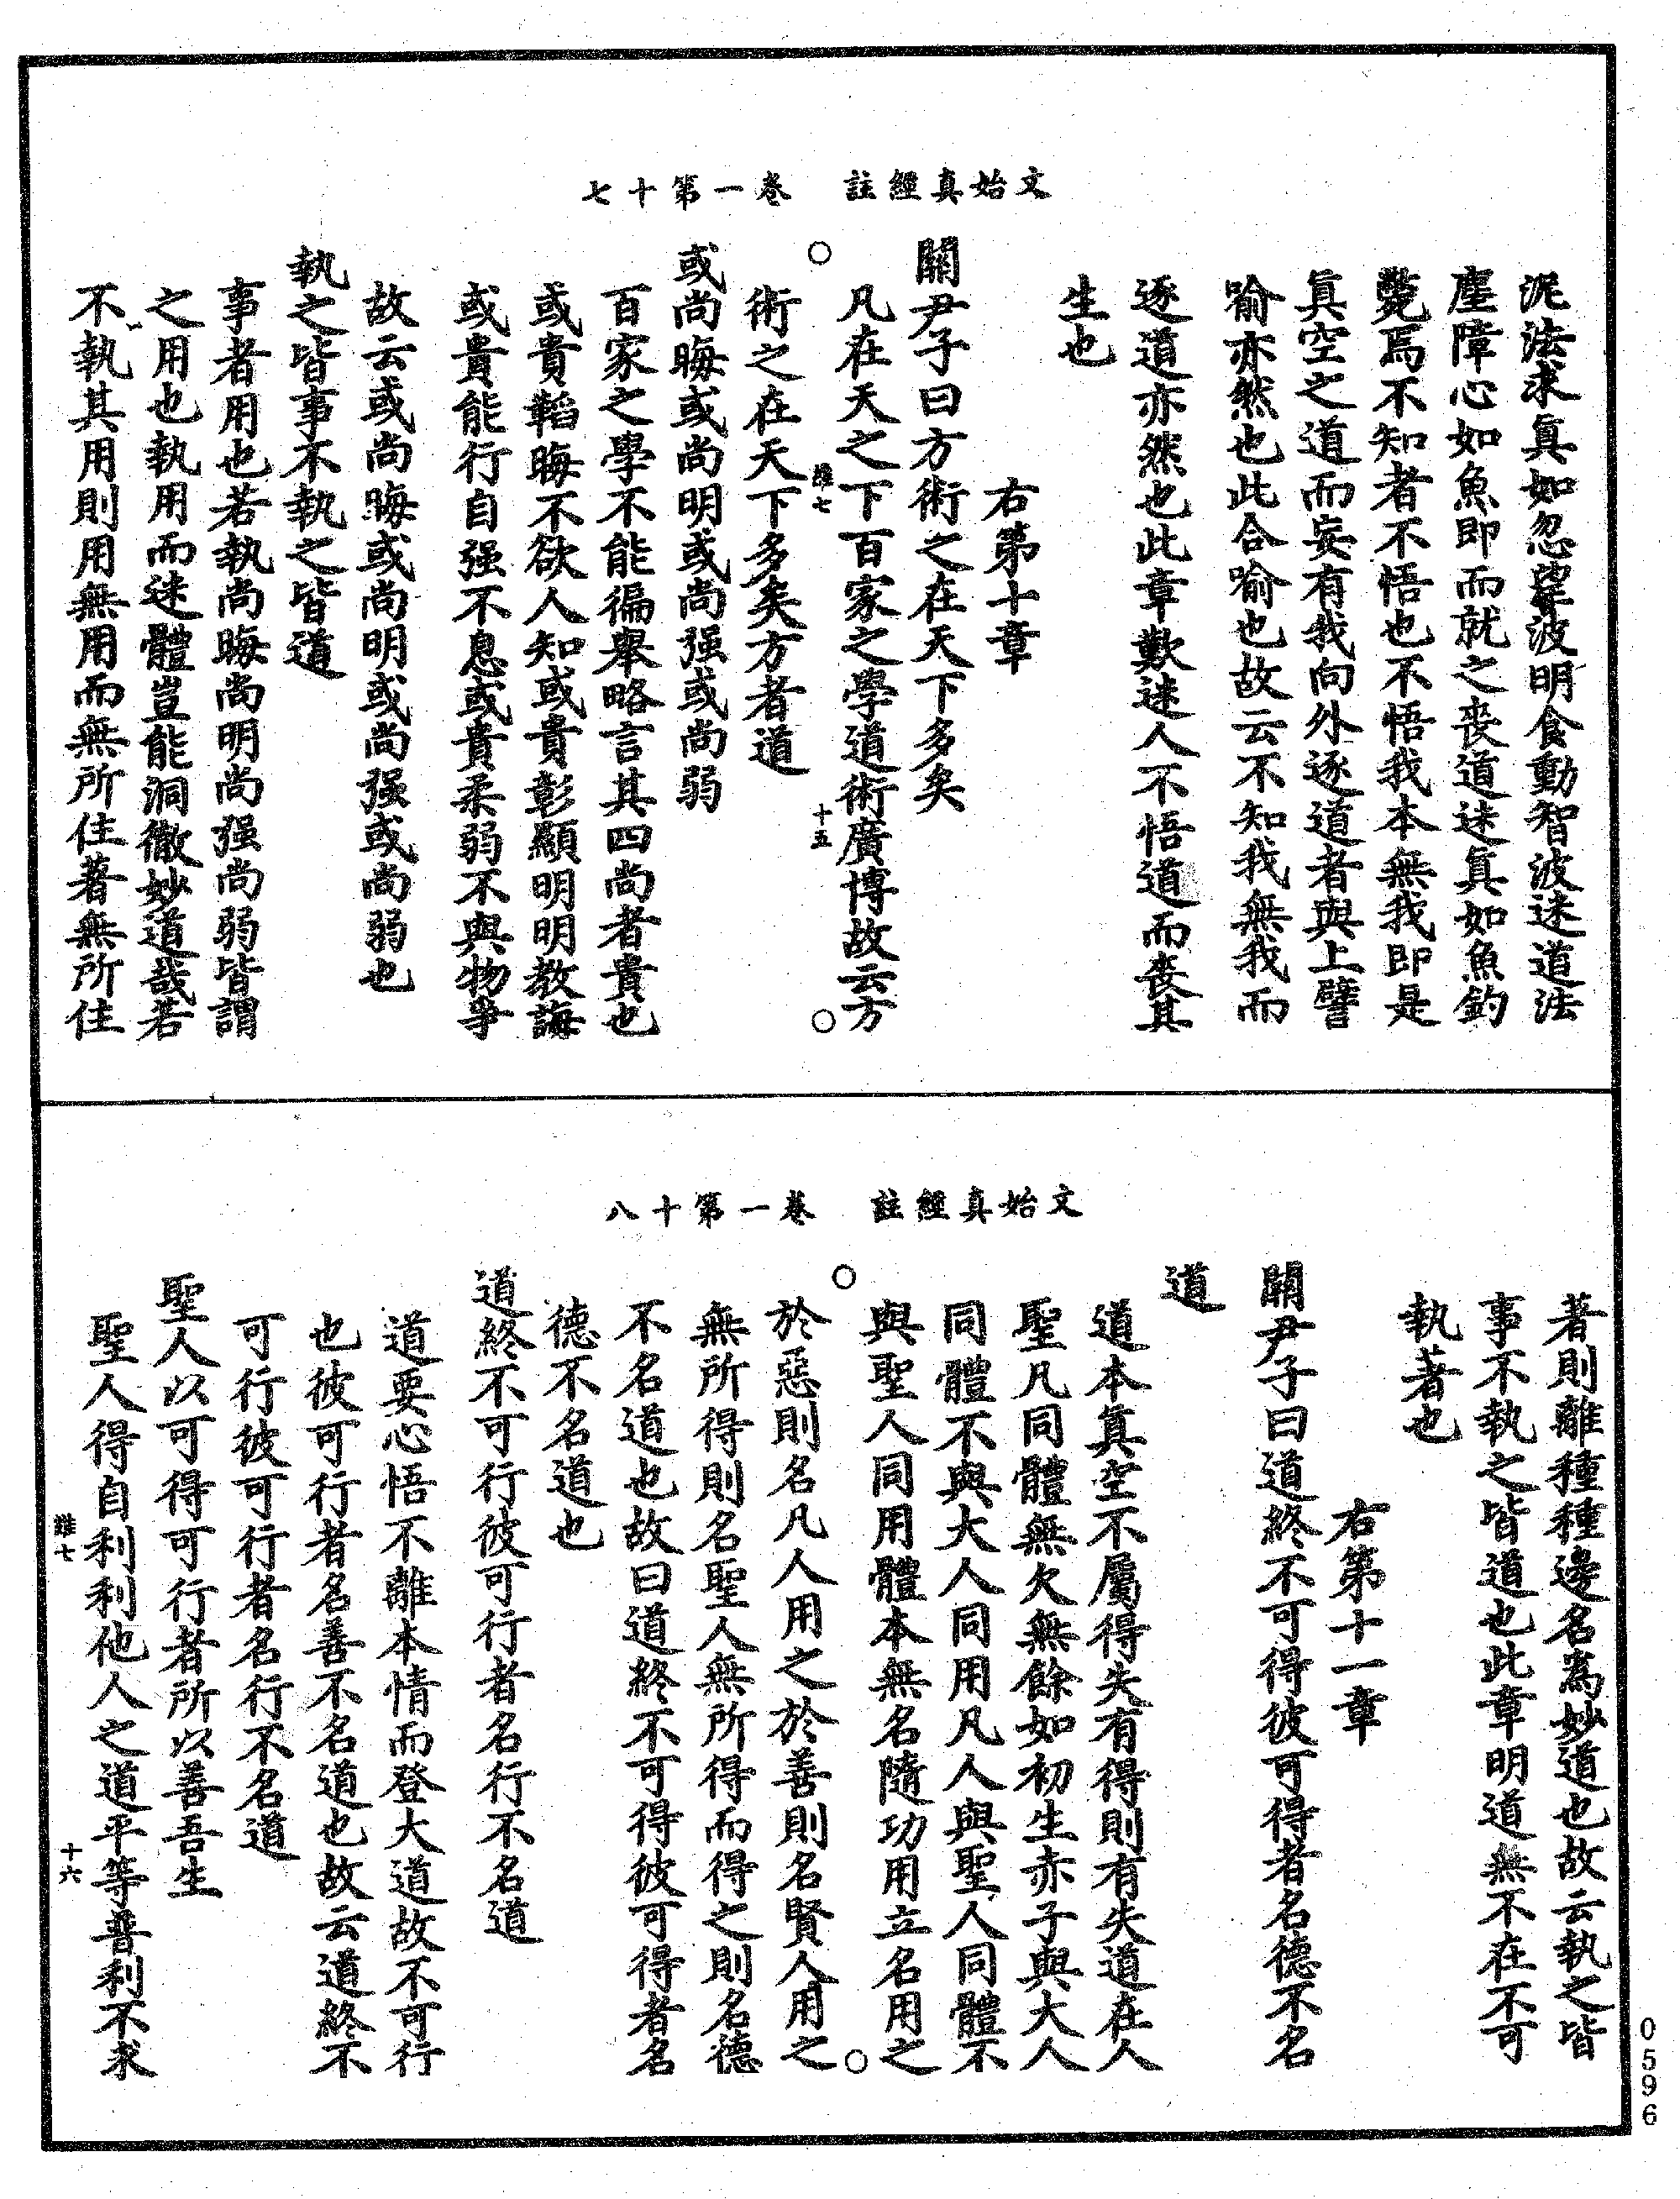 文始真經註　卷一第十七
泥法求眞如忽望波明食動智波迷道法
塵障心如魚即而就之喪道迷眞如魚釣
斃焉不知者不悟也不悟我本無我即是
眞空之道而妄有我向外逐道者與上譬
喻亦然也此合喻也故云不知我無我而
逐道亦然也此章歎迷人不悟道而喪其
生也
右第十章
關尹子曰方術之在天下多矣
凡在天之下百家之學道術廣博故云方
雖七　十五
術之在天下多矣方者道
或尚晦或尚明或尚强或尚弱
百家之學不能徧舉略言其四尚者貴也
或貴韜晦不欲人知或貴彰顯明明教誨
或貴能行自强不息或貴柔弱不與物爭
故云或尚晦或尚明或尚强或尚弱也
執之皆事不執之皆道
事者用也若執尚晦尚明尚强尚弱皆謂
之用也執用而迷體豈能洞徹妙道哉若
不執其用則用無用而無所住著無所住
文始真經註　卷一第十八
著則離種種邊名爲妙道也故云執之皆
事不執之皆道也此章明道無不在不可
執著也
右第十一章
關尹子曰道終不可得彼可得者名德不名
道
道本眞空不屬得失有得則有失道在人
聖凡同體無欠無餘如初生赤子與大人
同體不與大人同用凡人與聖人同體不
與聖人同用體本無名隨功用立名用之
於惡則名凡人用之於善則名賢人用之
無所得則名聖人無所得而得之則名德
不名道也故曰道終不可得彼可得者名
德不名道也
道終不可行彼可行者名行不名道
道要心悟不離本情而登大道故不可行
也彼可行者名善不名道也故云道終不
可行彼可行者名行不名道
聖人以可得可行者所以善吾生
聖人得自利利他人之道平等普利不求
雖七　十六
0596